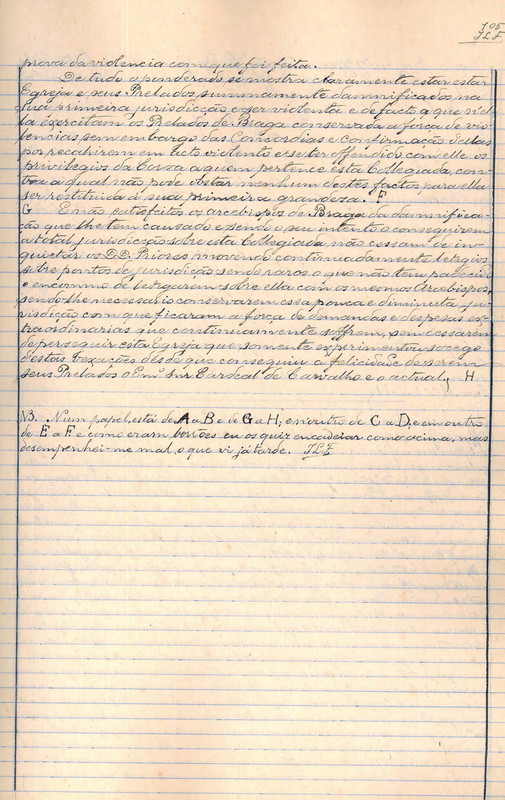 105
JLF
prova da violencia com que foi feita.
De tudo o ponderado se mostra claramente estar esta
Egreja e seus Prelados summamente damnificados na
sua primeira jurisdicção e ser violenta e de facto a que n'el-
la exercitam os Prelados de Braga conservada a força de vio-
lencias, sem embargo das Concordias e Confirmação dellas
por recahirem em acto violento e se ter offendido com elle os
privilegios da Coroa a quem pertence esta Collegiada, con-
tra a qual não pode obstar nenhum destes factos, para ella
ser restituida á sua primeira grandeza. F
G E não satisfeitos os arcebispos de Braga da damnifica-
ção que lhe tem causado e sendo o seu intento o conseguirem
a total jurisdicção sobre esta Collegiada, não cessam de in-
quietar os D.D. Priores movendo continuadamente letigios
sobre pontos de jurisdicção sendo raros o que não tem padecido
o encommo de letigarem sobre ella com os mesmos Arcebispos,
sendo-lhe necessario conservarem essa pouca e diminuta ju-
risdicção com que ficaram a força de demandas e despesas ex-
traordinarias que continuamente soffrem, sem cessarem
de perseguir esta Egreja que somente experimentou socego
d'estas vexações desde que conseguiu a felicidade de serem
seus Prelados o Emº Snr Cardeal de Carvalho e o actual, H
NB. N'um papel está de A a B e de G a H; em outro de C a D, e em outro
de E a F e como eram borrões eu os quiz encadeiar como acima, mas
desempenhei-me mal, o que vi já tarde. JLF